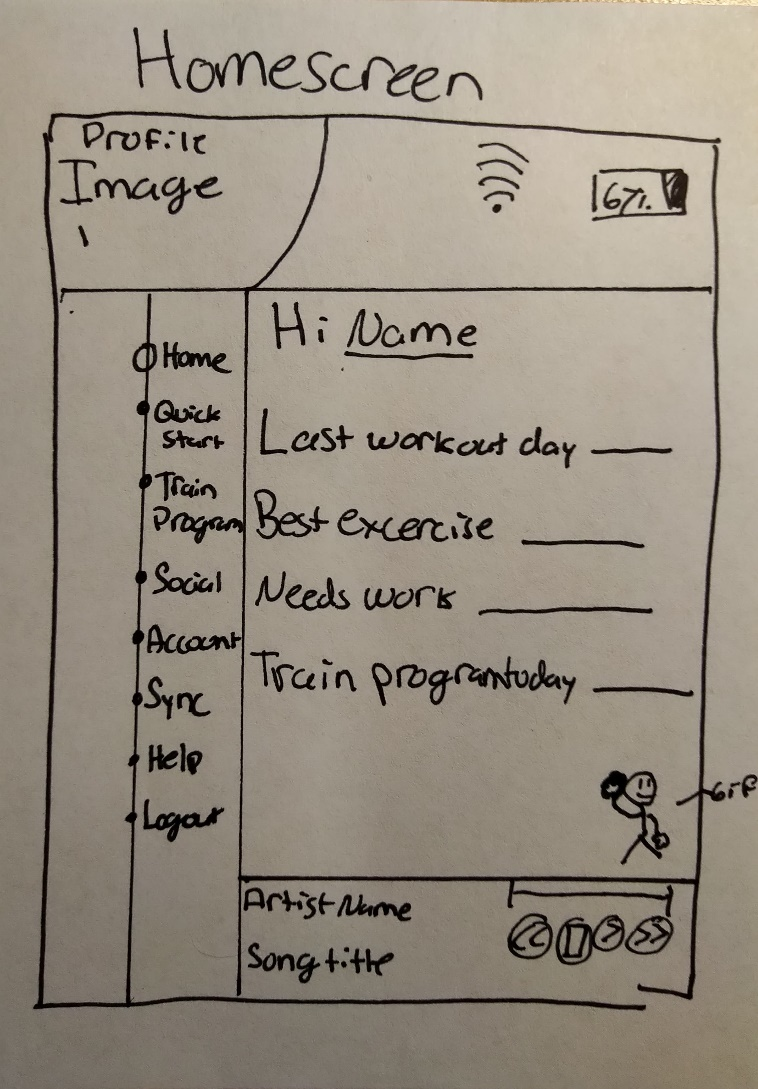 Homescreen
Profile
Image
67%
Hi Name
Home
Quick
Start
Train
Program
Social
Account
Sync
Help
Logout
Last workout day
Best excercise
Needs work
Train program today
Gif
Artist Name
Song title
<< > >>